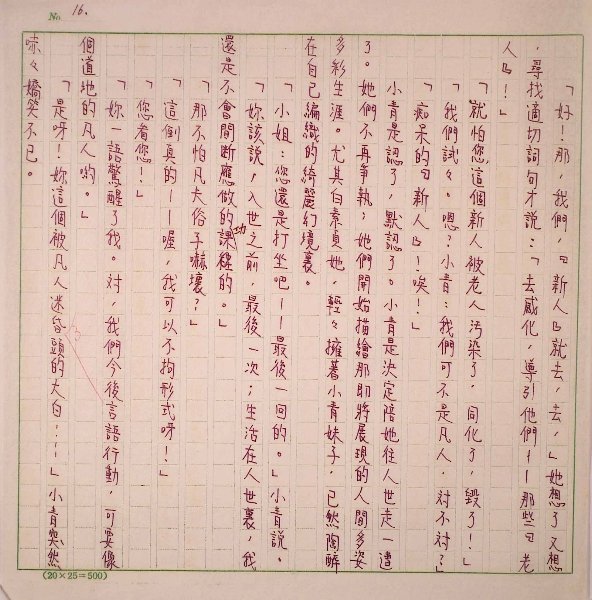 No. 16.
「好！那，我們，『新人』就去，去，」她想了又想
，尋找適切詞句才說：「去感化，導引他們——那些『老
人』！」
「就怕您這個新人被老人汚染了，同化了，毀了！」
「我們試々。嗯？小青：我們可不是凡人，對不對？」
「痴呆的『新人』！唉！」
小青是認了，默認了。小青是決定陪她住人世走一遭
了。她們不再爭執，她們開始描繪那即將展現的人間多姿
多彩生涯。尤其白素貞她，輕々擁著小青妹子，已然陶醉
在自己編織的綺麗幻境裏。
「小姐：您還是打坐吧——最後一回的。」小青說。
「妳該說，入世之前，最後一次；生活在人世裏，我
還是不會間斷應做的功課的。」
「那不怕凡夫俗子嚇壞？」
「這倒真的——喔，我可以不拘形式呀！」
「您看您！」
「妳一語驚醒了我。對，我們今後言語行動，可要像
個道地的凡人喲。」
「是呀！妳這個被凡人迷昏頭的大白……」小青突然
嗬々嬌笑不已。
(20×25=500)